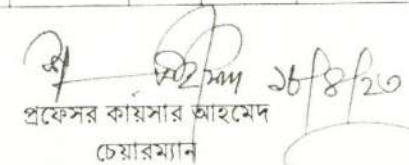 ১৮/৪/২৩
প্রফেসর কায়সার আহমেদ
চেয়ারম্যান